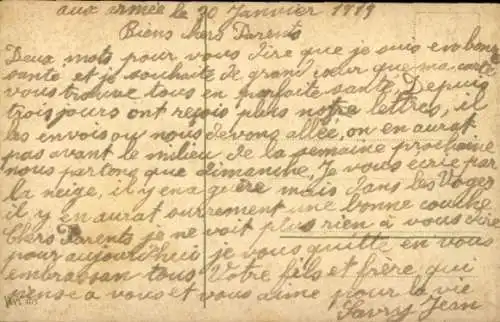 aux armée le 20 Janvier 1919
Biens chers Parents
Deux mots pour vous dire que je suis en bonne
santé et je souhaite de grand cœur que ma carte
vous trouve tous en parfaite santé, Depuis
trois jours ont reçois plus notre lettres, il
les envois ou nous devons allée, on en aurat
pas avant le milieu de la semaine prochaine
nous partons que dimanche, Je vous écrie par
la neige, il y en a guère mais dans les Voges
il y en aurat surrement une bonne couche
Chers Parents je ne voit plus rien à vous dire
pour aujourd'hui je vous quitte en vous
embrassan tous Votre fils et frère, qui
pense a vous et vous aime pour la vie
Savry Jean